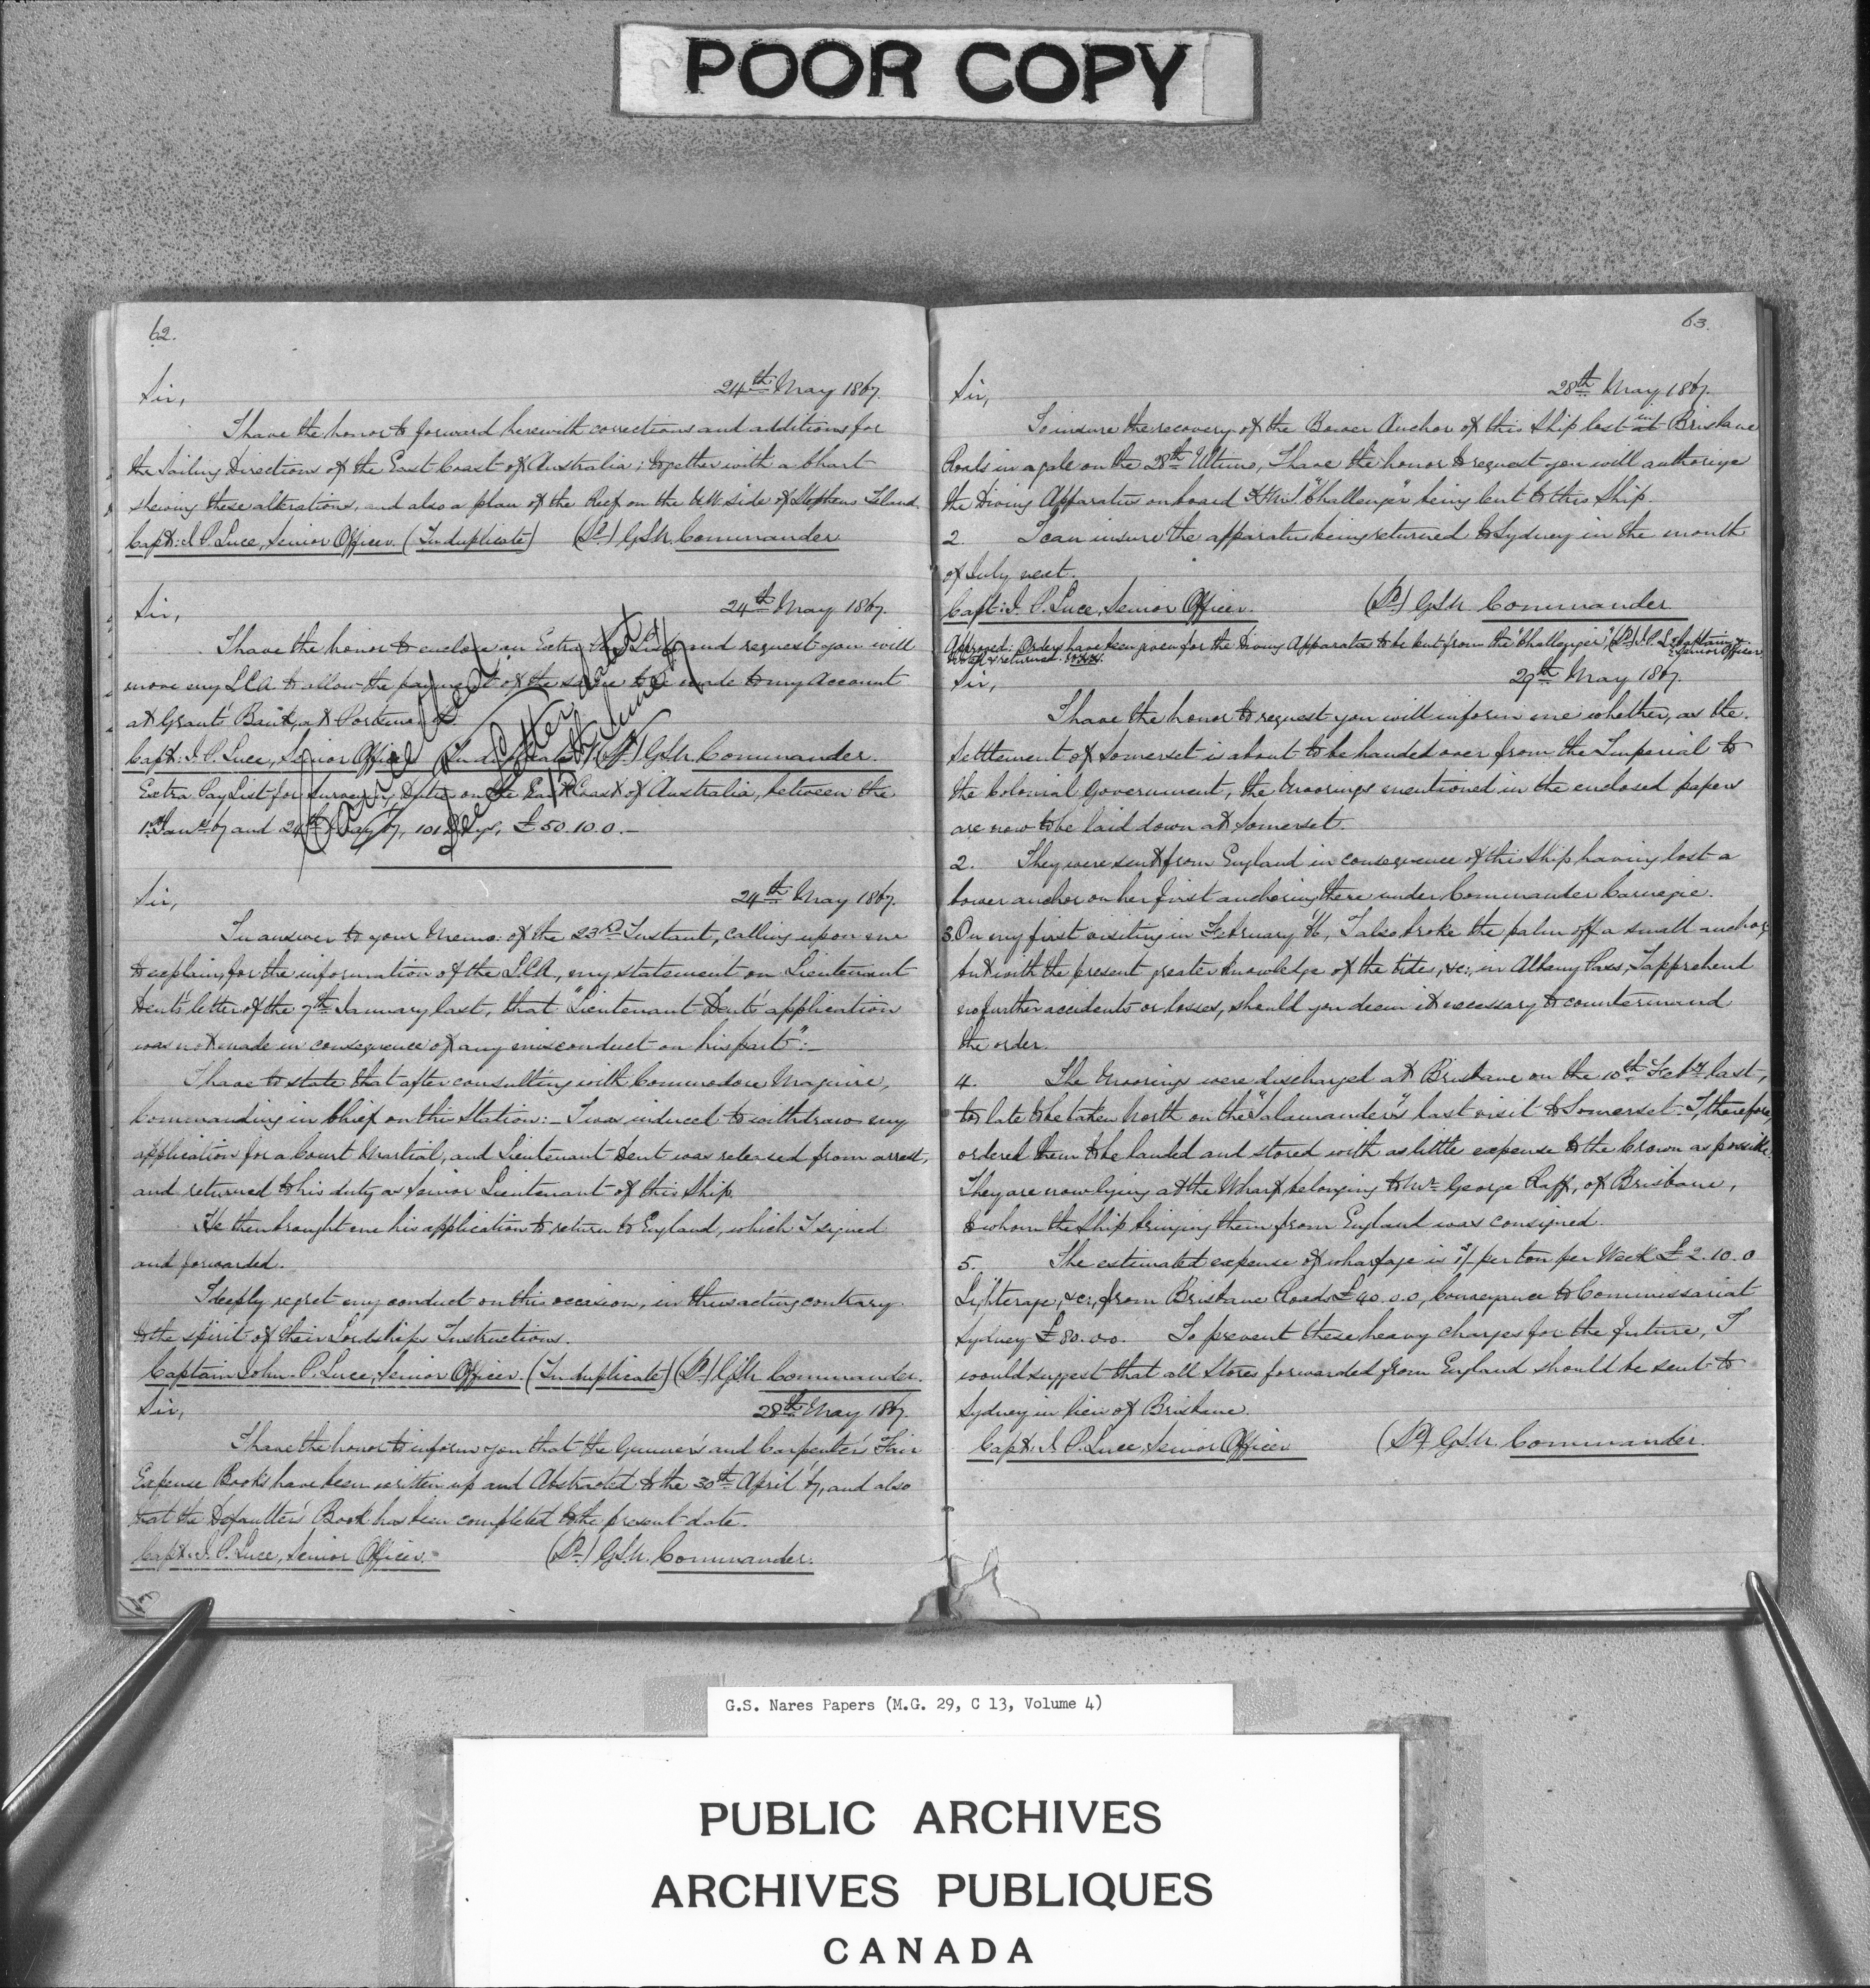 POOR COPY
62.
24th May 1867.
Sir,
I have the honor to forward herewith corrections and additions for
the Sailing Directions of the East Coast of Australia; together with a Chart
shewing these alterations, and also a plan of the Reef on the N.W. side of Stephens Island.
Capt: J. P. Luce, Senior Officer. (In duplicate) (Sd) G.S.N. Commander
24th May 1867.
Sir,
I have the honor to enclose an Extra Pay List and request you will
move my L.C.A. to allow the payment of the same to be made to my Account
at Grants Bank, at Portsmouth
Capt: J. P. Luce, Senior Officer (In duplicate) (Sd) G.S.N. Commander.
Extra Pay List for Surveying Duties on the East Coast of Australia, between the
1st Jany 67 and 24th May 67, 101 Days, £50.10.0.—
(Cancelled.
See letter dated
15th June 67)
24th May 1867.
Sir,
In answer to your Memo: of the 23rd Instant, calling upon me
to explain, for the information of the L.C.A, my statement on Lieutenant
Dent's letter of the 7th January last, that "Lieutenant Dent's application
was not made in consequence of any misconduct on his part":—
I have to state that after consulting with Commodore Maguire,
Commanding in Chief on this Station:— I was induced to withdraw my
application for a Court Martial, and Lieutenant Dent was released from arrest,
and returned to his duty as Senior Lieutenant of this Ship.
He then brought me his application to return to England, which I signed
and forwarded.
I deeply regret my conduct on this occasion, in thus acting contrary
to the spirit of their Lordships Instructions.
Captain John P. Luce, Senior Officer. (In duplicate) (Sd) G.S.N. Commander.
28th May 1867.
Sir,
I have the honor to inform you that the Gunner's and Carpenter's Fair
Expense Books have been written up and Abstracted to the 30th April 67, and also
that the Defaulter's Book has been completed to the present date.
Capt: J. P. Luce, Senior Officer. (Sd) G.S.N. Commander.
63.
28th May 1867.
Sir,
To insure the recovery of the Bower Anchor of this Ship lost in Brisbane
Roads in a gale on the 28th Ultimo, I have the honor to request you will authorize
the Diving Apparatus onboard H.M.S. "Challenger" being lent to this Ship.
2. I can insure the apparatus being returned to Sydney in the month
of July next.
Capt: J. P. Luce, Senior Officer. (Sd) G.S.N. Commander
Approved. Orders have been given for the Diving Apparatus to be lent from the "Challenger", (Sd) J.P.L. Captain &
Senior Officer.
29th May 1867.
Sir,
I have the honor to request you will inform me whether, as the
Settlement of Somerset is about to be handed over from the Imperial to
the Colonial Government, the Moorings mentioned in the enclosed papers
are now to be laid down at Somerset.
2. They were sent from England in consequence of this Ship having lost a
bower anchor on her first anchoring there under Commander Carnegie.
3. On my first visiting in February 66, I also broke the palm off a small anchor,
but with the present greater knowledge of the tides, &c:, in Albany Pass, I apprehend
no further accidents or losses, should you deem it necessary to countermand
the order.
4. The Moorings were discharged at Brisbane on the 10th Feby last,
to late to be taken North on the "Salamander's" last visit to Somerset. I, therefore,
ordered them to be landed and stored with as little expense to the Crown as possible.
They are now lying at the Wharf belonging to Mr George Raff, of Brisbane,
to whom the Ship bringing them from England was consigned.
5. The estimated expense of wharfage is per ton per Week £2.10.0
Lighterage, &c:, from Brisbane Roads £40.0.0, Conveyance to Commissariat
Sydney £80.0.0. To prevent these heavy charges for the future, I
would suggest that all Stores forwarded from England should be sent to
Sydney in lieu of Brisbane.
Capt: J. P. Luce, Senior Officer (Sd) G.S.N. Commander.
G.S. Nares Papers (M.G. 29, C 13, Volume 4)
PUBLIC ARCHIVES
ARCHIVES PUBLIQUES
CANADA